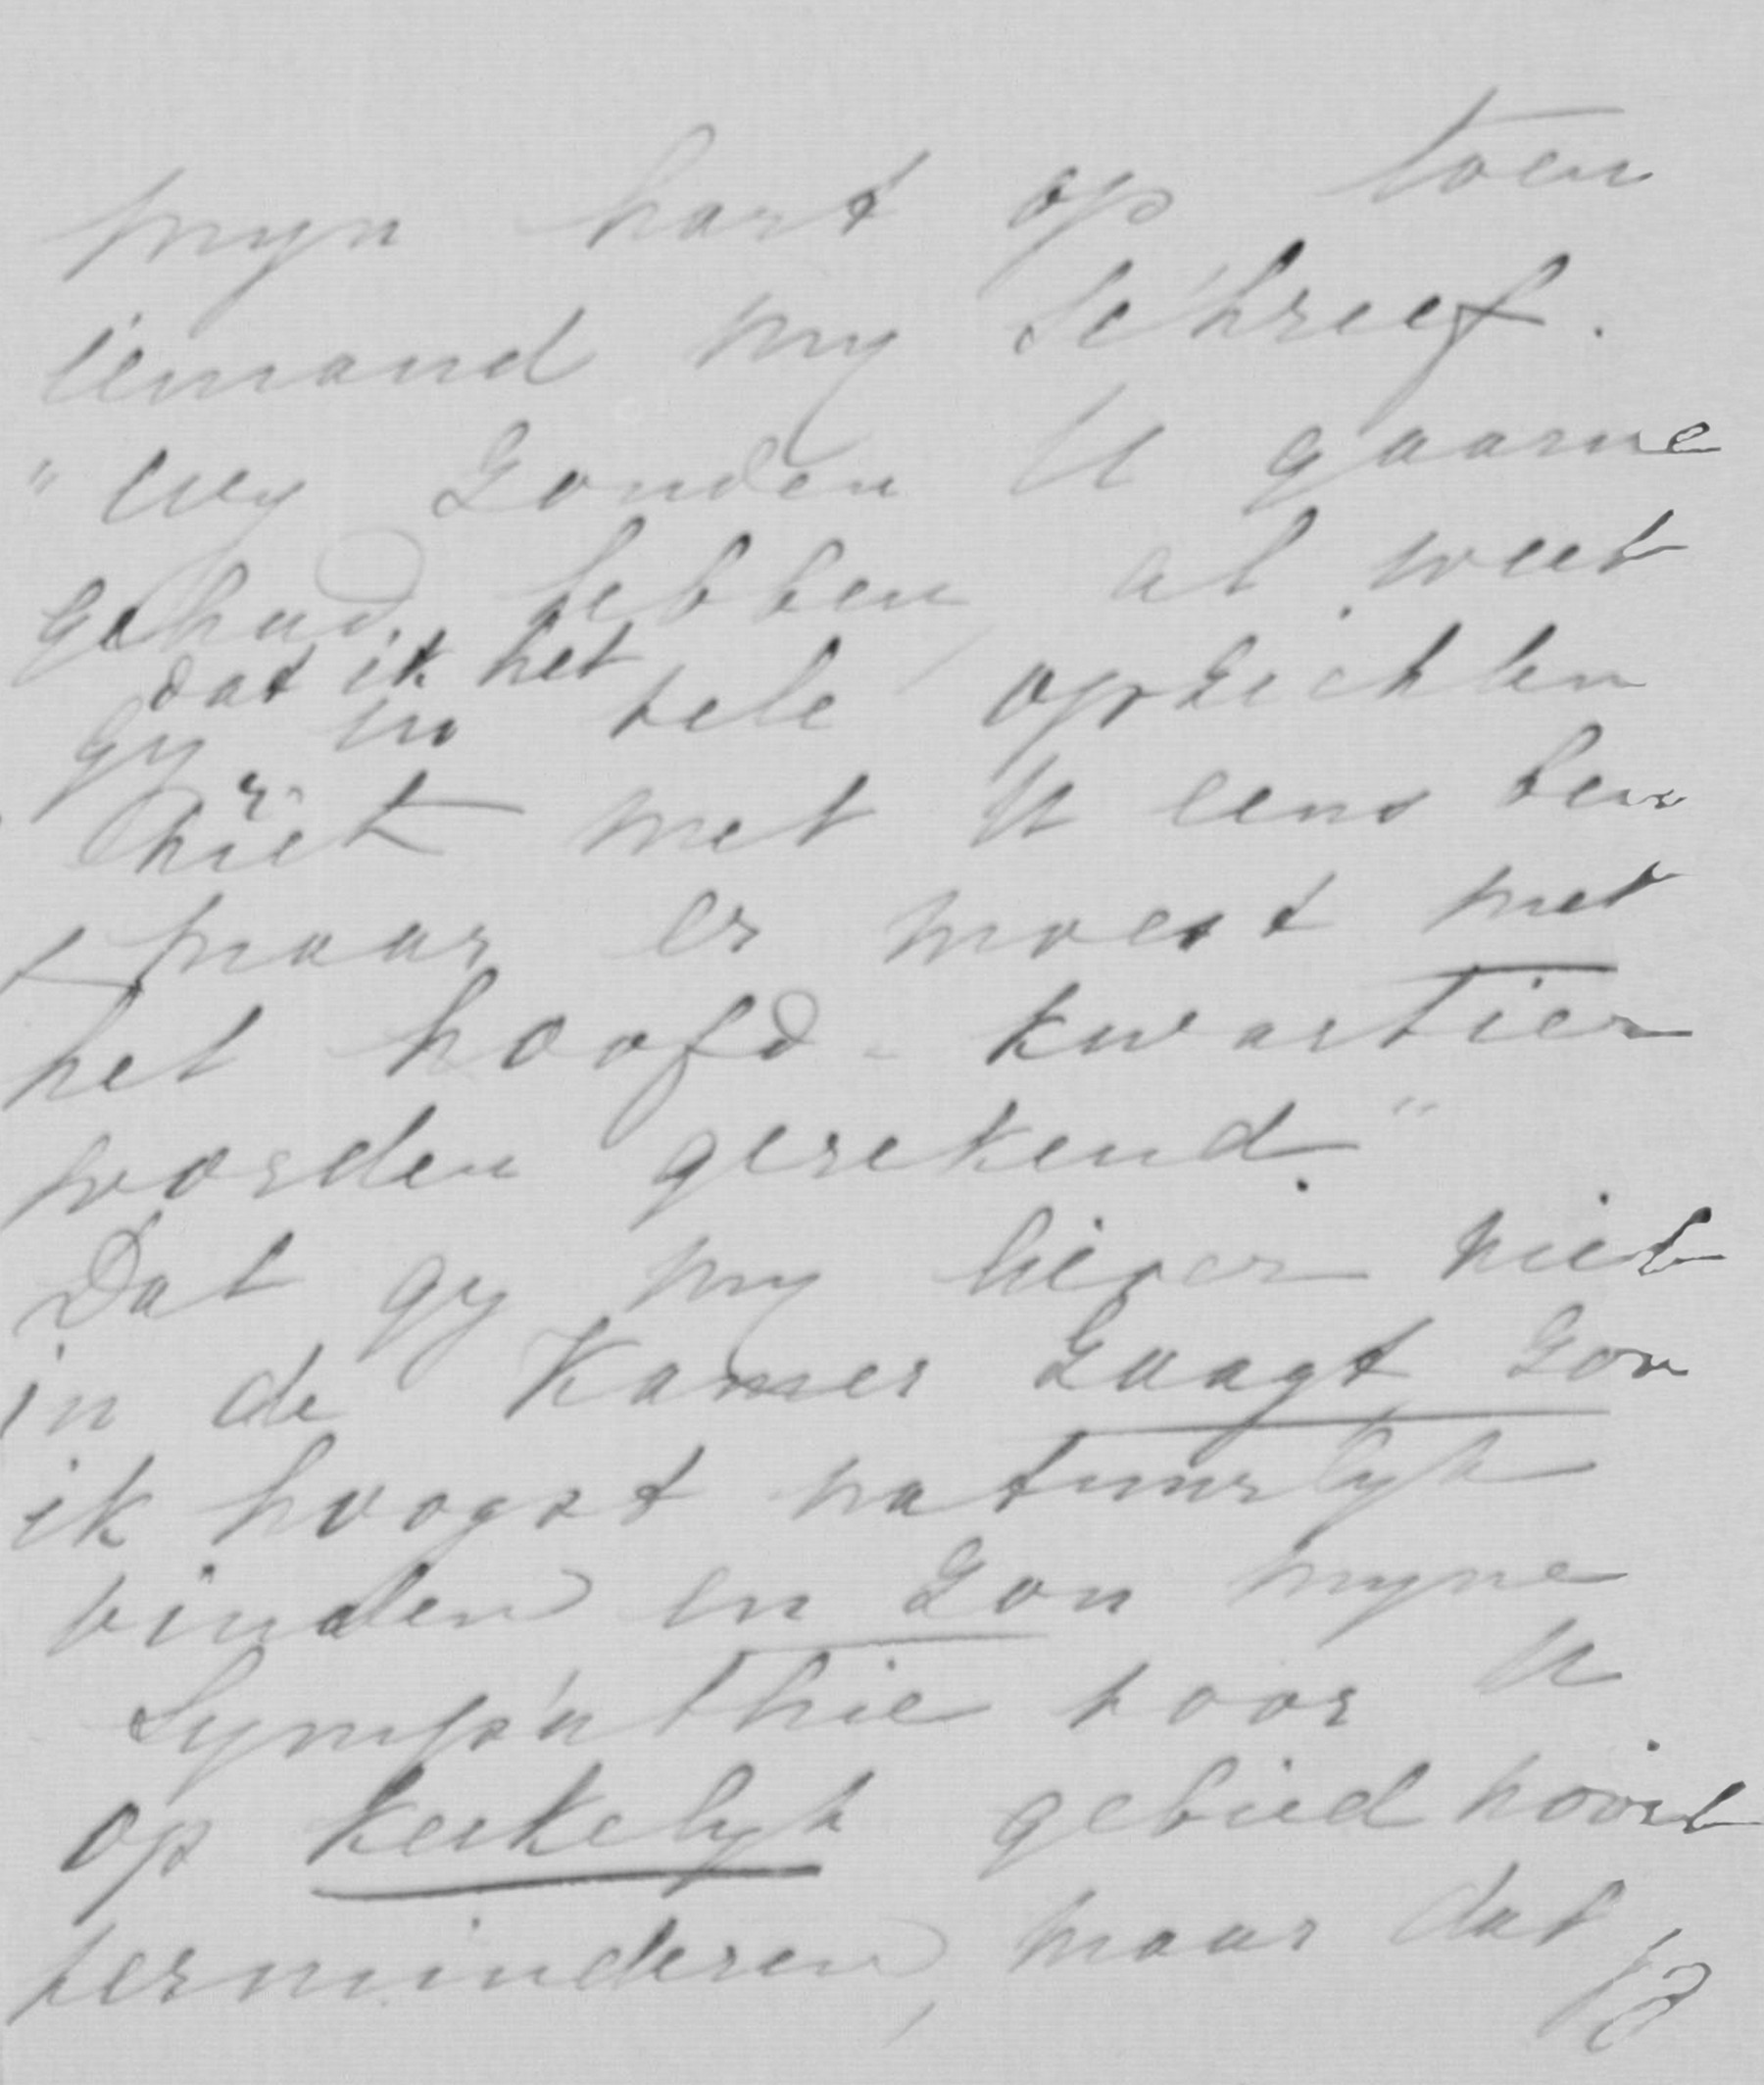 myn hart op toen
iemand my schreef.
"Wy zouden U gaarne
gehad hebben, al weet
dat ik het
gy in vele opzichten
niet met U eens ben
maar er moest met
het hoofd-kwartier
worden gerekend."
Dat gy my liever niet
in de Kamer zaagt zou
ik hoogst natuurlyk
vinden en zou myne
Sympathie voor U
op kerkelyk gebied nooit
verminderen, maar dat